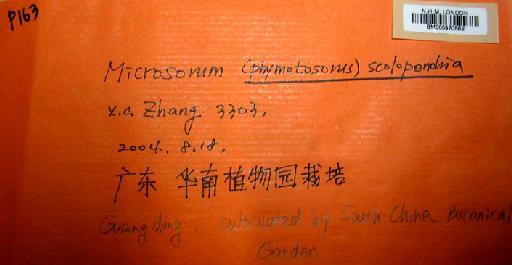 P163
N.H.M. LONDON
Microsorum (phymatosorus) scolopendria
X.C. Zhang 3303,
2004. 8.18,
广东 华南植物园栽培
Guangdong, cultivated by South China Botanical
Garden